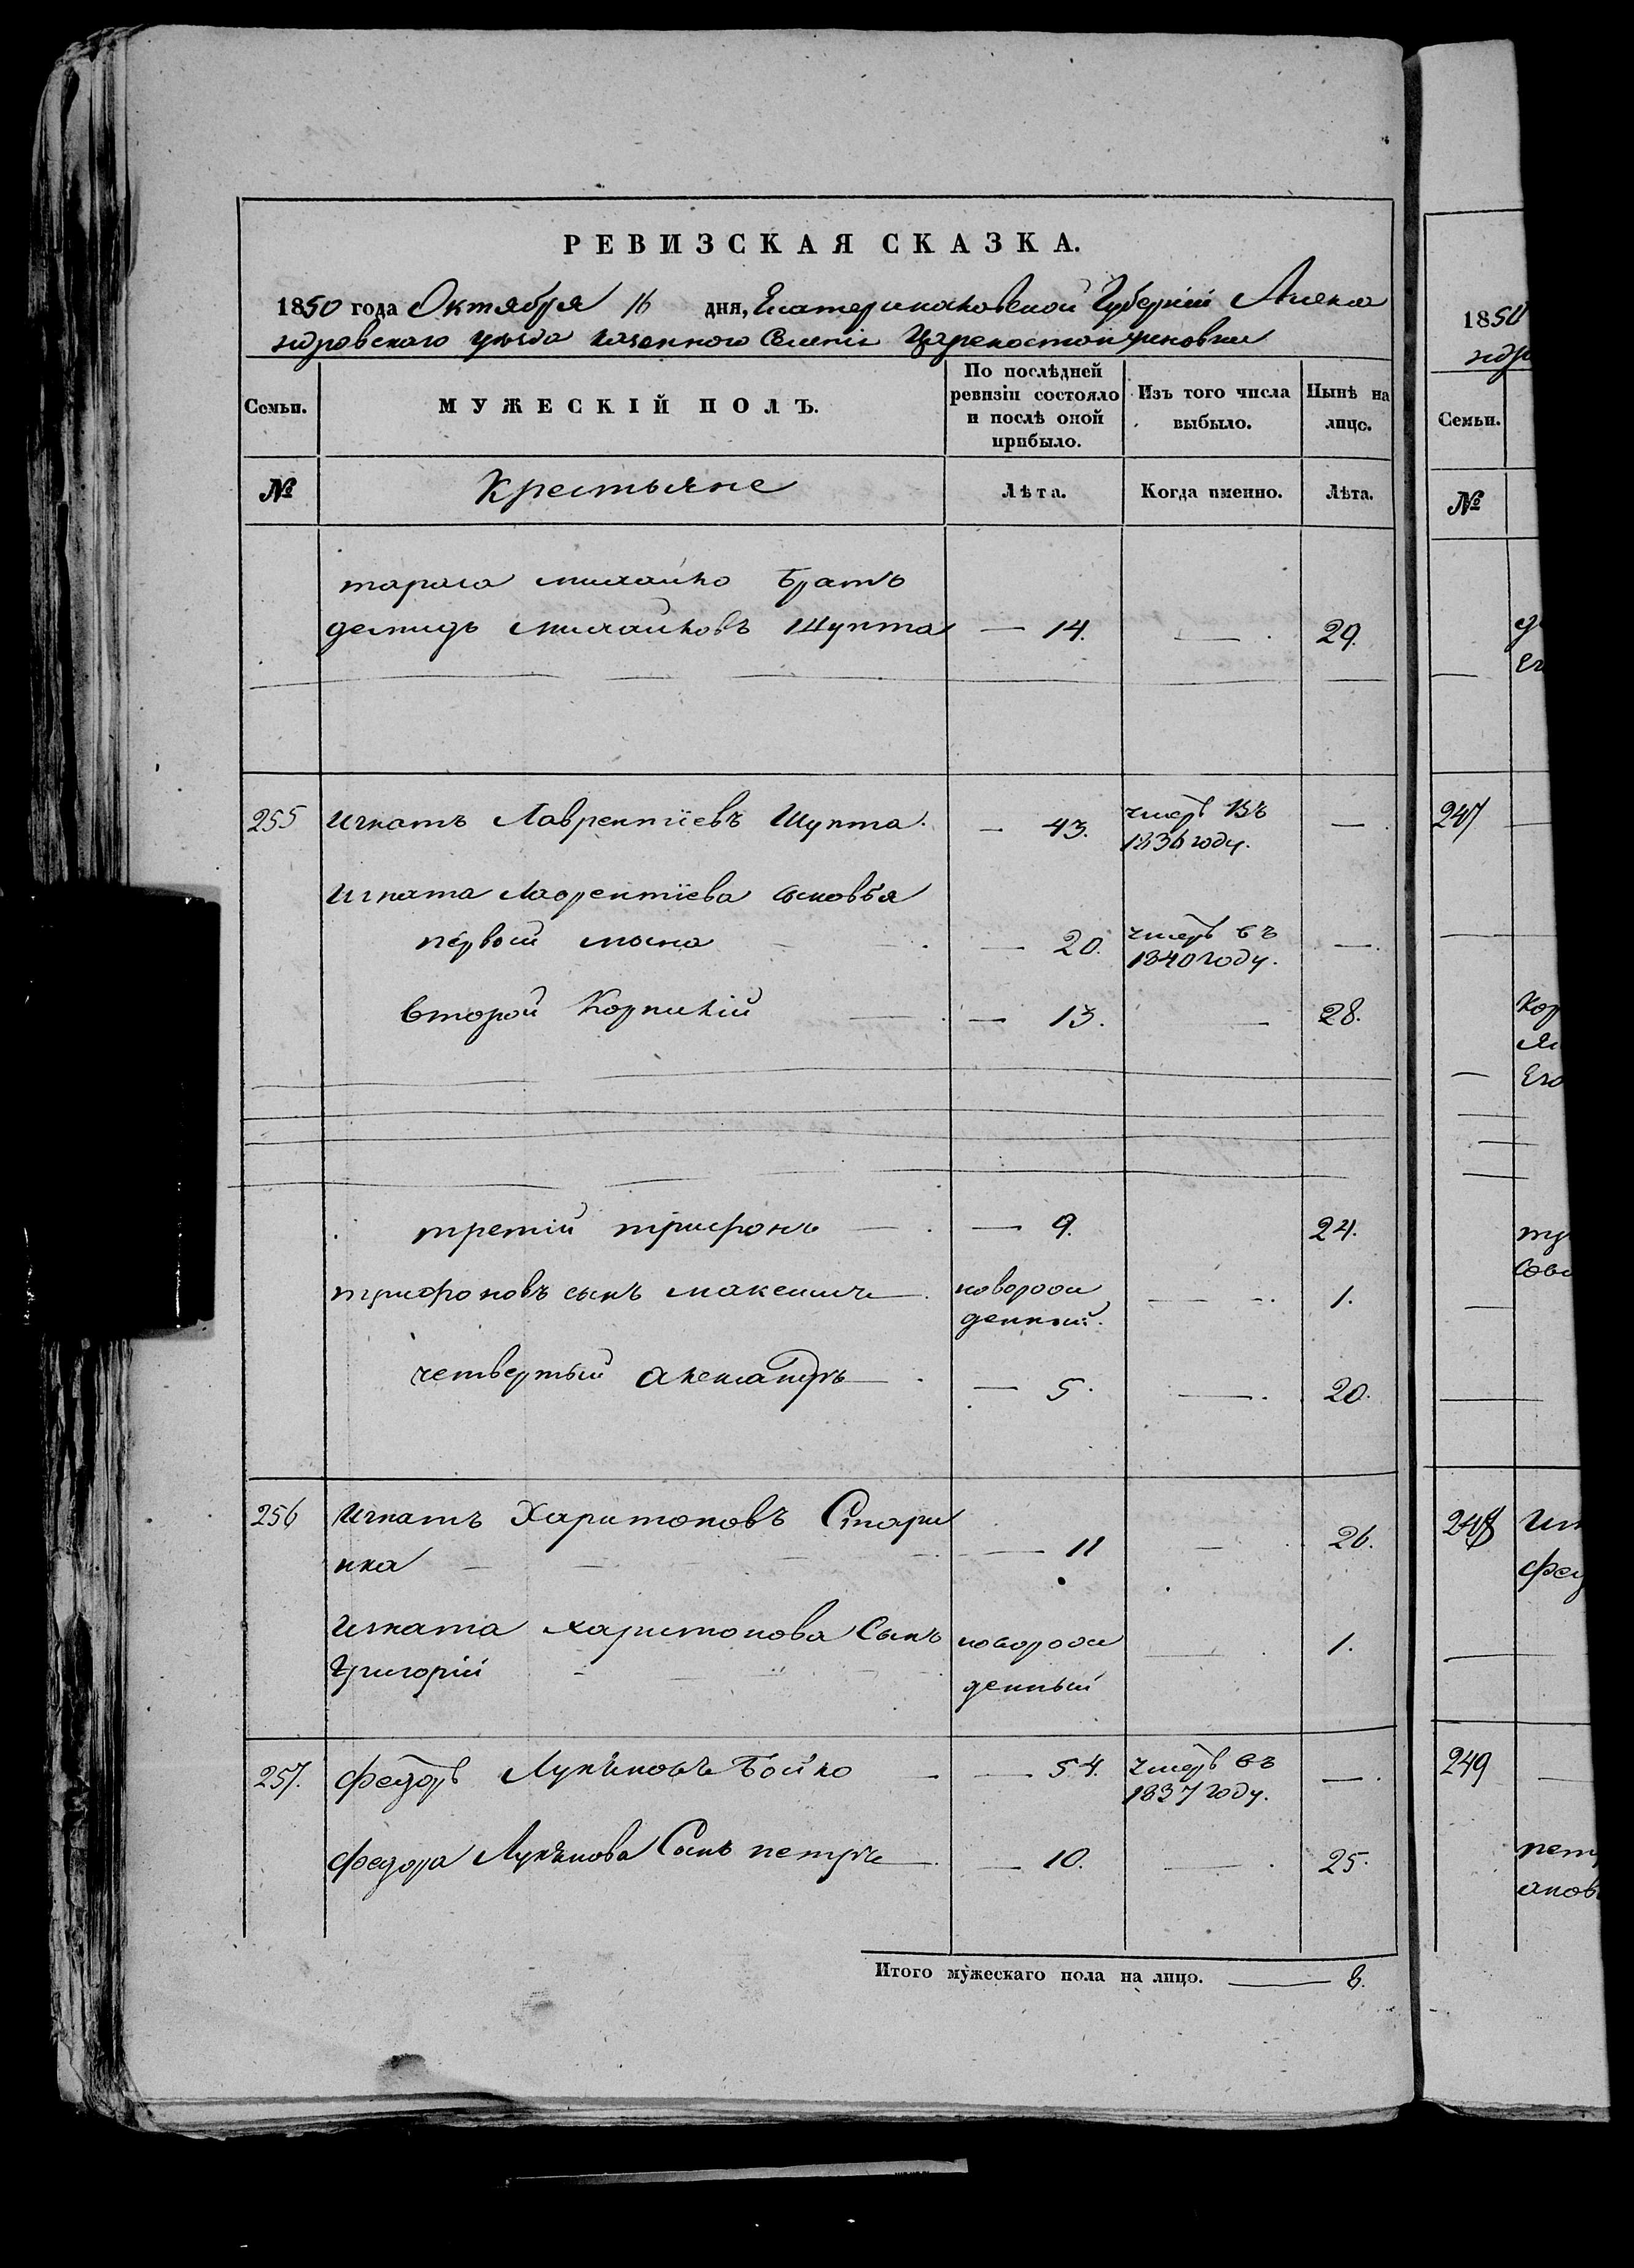 РЕВИЗСКАЯ СКАЗКА.
1850 года Октября 16 дня, Екатеринославской Губернии Алекса
ндровскаго уѣзда казенного Селения Цареконстантиновки
Семьи.
МУЖЕСКІЙ ПОЛЪ.
По послѣдней ревизіи состояло и послѣ оной прибыло.
Изъ того числа выбыло.
Нынѣ на лицо.
№
Крестьяне
Лѣта.
Когда именно.
Лѣта.
тараса михайло братъ
демидъ михайловъ Шупта — 14. — 29.
255 Игнатъ Лаврентіевъ Шупта. — 43. умеръ Въ 1836 году. —
Игната Лаврентіева сыновья
первой — 20. умеръ въ 1840 году. —
второй Корнилій — 13. — 28.
третій трифонъ — 9. 24.
трифоновъ сынъ максимъ — новорож денный. — 1.
четвертый александръ — 5. — 20.
256 Игнатъ Харитоновъ Стари
нка — 11 — 26.
Игната харитонова Сынъ новорож — 1.
Григорій денный
257. федоръ Лукяновъ Бойко — 54. умеръ въ 1837 году. —
федора Лукянова Сынъ петръ — 10. — 25.
Итого мужескаго пола на лицо. — 8.
1850
ндр
Семьи.
№
247
Кор
Его
248
Иг
фед
249
пет
анов